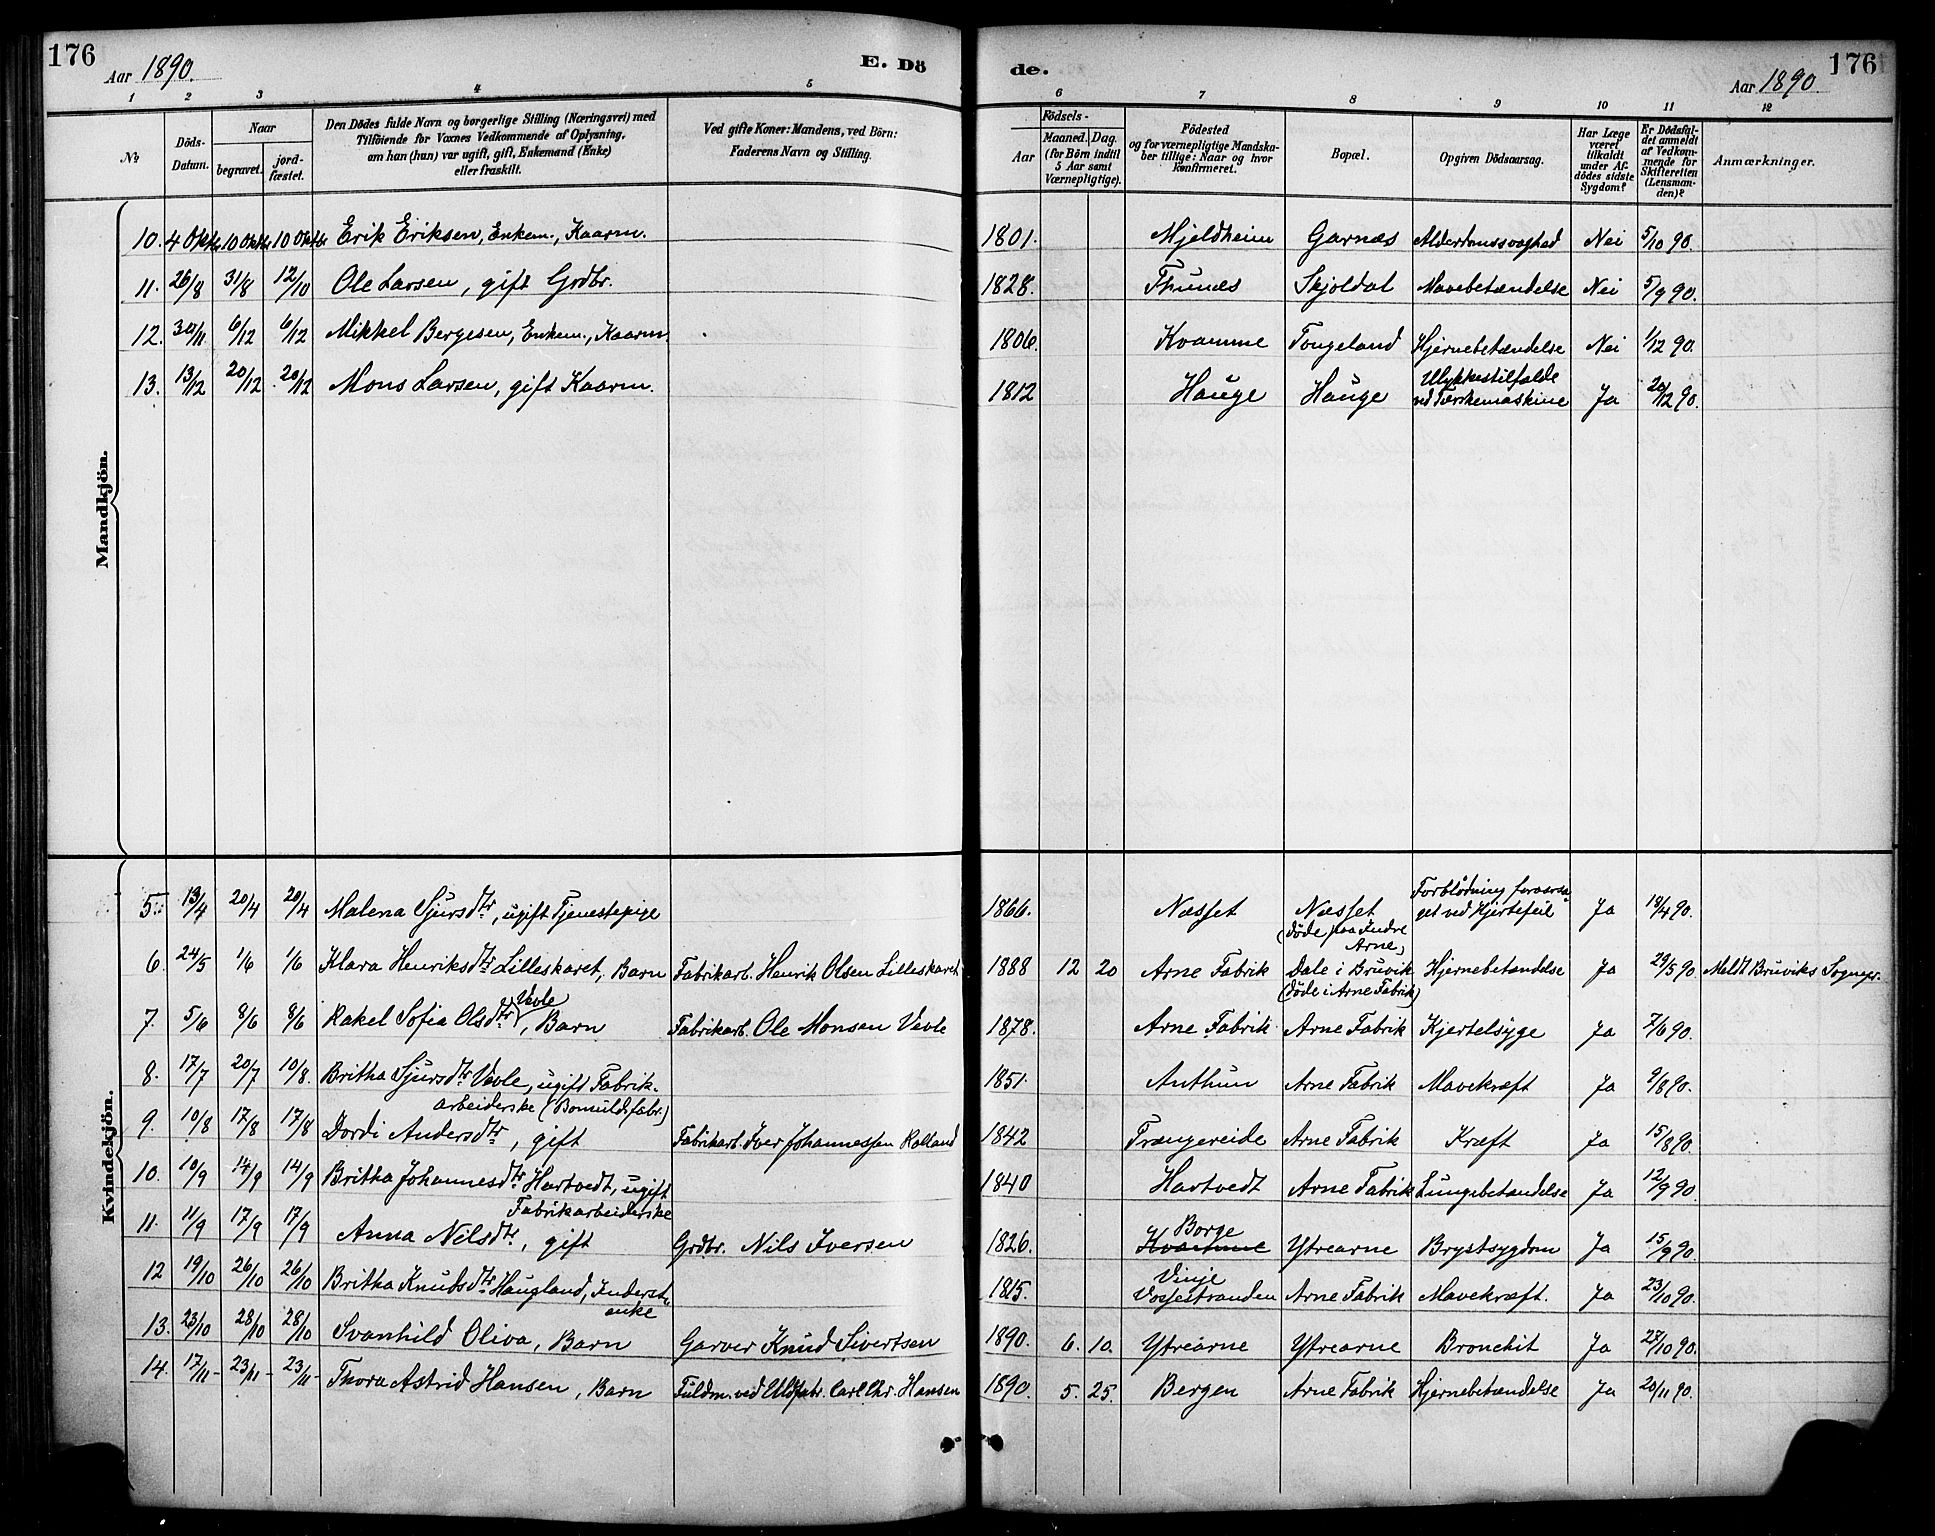 176
Aar 1890.
E. Dö
de.
176
Aar 1890
1 2 3 4 5 6 7 8 9 10 11 12
No
Döds-
Datum.
Naar
begravet.
jord-
fæstet.
Den Dödes fulde Navn og borgerlige Stilling (Næringsvei) med
Tilföiende for Voxnes Vedkommende af Oplysning,
om han (hun) var ugift, gift, Enkemand (Enke)
eller fraskilt.
Ved gifte Koner: Mandens, ved Börn:
Faderens Navn og Stilling.
Födsels-
Aar
Maaned. Dag.
(for Börn indtil
5 Aar samt
Værnepligtige).
Födested
og for værnepligtige Mandska-
ber tillige: Naar og hvor
konfirmeret.
Bopæl.
Opgiven Dödsaarsag.
Har Læge
været
tilkaldt
under Af-
dödes sidste
Sygdom?
Er Dödsfal-
det anmeldt
af Vedkom-
mende for
Skifteretten
(Lensman-
den)?
Anmærkninger.
Mandkjön.
10. 4 Oktbr 10 Oktbr 10 Oktbr Erik Eriksen, Enkem., Kaarm. 1801. Mjeldheim Garnæs Alderdomssvaghed Nei 5/10 90.
11. 26/8 31/8 12/10 Ole Larsen, gift Grdbr. 1828. Thunæs Skjoldal Mavebetændelse Nei 5/9 90.
12. 30/11 6/12 6/12 Mikkel Bergesen, Enkem., Kaarm. 1806. Kvamme Tongeland Hjernebetændelse Nei 1/12 90.
13. 13/12 20/12 20/12 Mons Larsen, gift Kaarm. 1812 Hauge Hauge Ulykkestilfælde
ved Tærskemaskine Ja 20/12 90.
Kvindekjön.
5. 13/4 20/4 20/4 Malena Sjursdtr, ugift Tjenestepige 1866. Næsset Næsset
(døde paa Indre
Arne) Forblødning foraarsa-
get ved Hjertefeil Ja 18/4 90.
6. 24/5 1/6 1/6 Klara Henriksdtr Lilleskaret, Barn Fabrikarb. Henrik Olsen Lilleskaret 1888 12 20 Arne Fabrik Dale i Bruvik
(døde i Arne Fabrik) Hjernebetændelse Ja 29/5 90. Meldt Bruviks Sognepr.
7. 5/6 8/6 8/6 Rakel Sofia Olsdtr Vevle, Barn Fabrikarb. Ole Monsen Vevle 1878. Arne Fabrik Arne Fabrik Kjertelsyge Ja 7/6 90.
8. 17/7 20/7 10/8. Britha Sjursdtr Vevle, ugift Fabrik-
arbeiderske (Bomuldsfabr.) 1851. Anthun Arne Fabrik Mavekræft Ja 9/8 90.
9. 10/8 17/8 17/8 Dordi Andersdtr, gift Fabrikarb. Iver Johannessen Rolland 1842 Trængereide Arne Fabrik Kræft Ja 15/8 90.
10. 10/9 14/9 14/9 Britha Johannesdtr Hartvedt, ugift
Fabrikarbeiderske 1840 Hartvedt Arne Fabrik Lungebetændelse Ja 12/9 90.
11. 11/9 17/9 17/9 Anna Nilsdtr, gift Grdbr. Nils Iversen 1826. Borge
Kvamme Ytrearne Brystsygdom Ja 15/9 90.
12 19/10 26/10 26/10 Britha Knutsdtr Haugland, Inderst-
enke 1815. Vinje
Vossestranden Arne Fabrik Mavekræft. Ja 23/10 90.
13. 23/10 28/10 28/10 Svanhild Oliva, Barn Garver Knud Sivertsen 1890. 6. 10. Ytrearne Ytrearne Bronchit Ja 27/10 90.
14. 17/11 23/11 23/11 Thora Astrid Hansen, Barn Fuldm. ved Uldfabr. Carl Chr. Hansen 1890. 5. 25. Bergen Arne Fabrik Hjernebetændelse Ja 20/11 90.